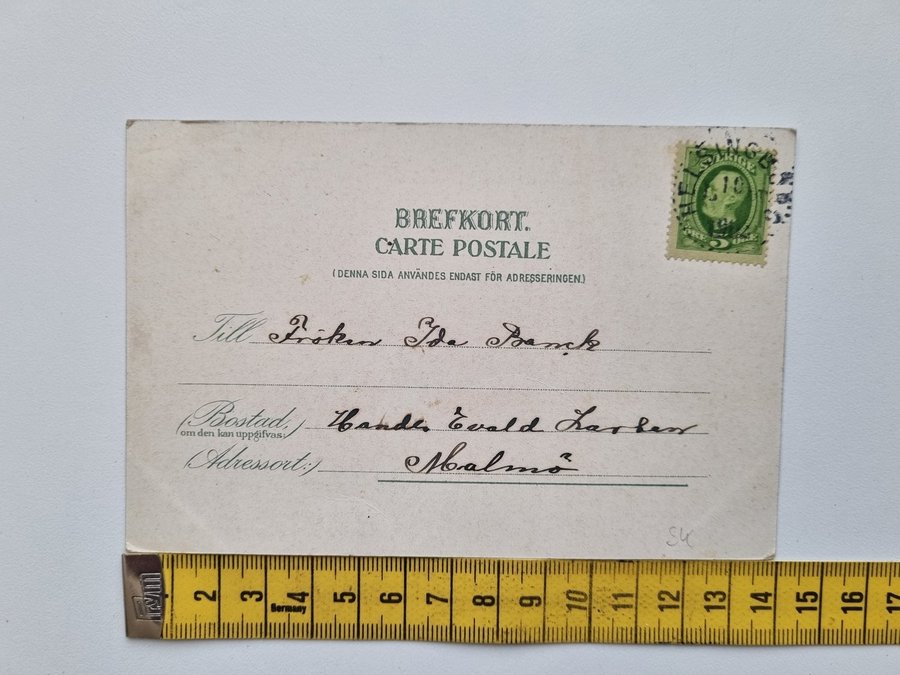 HELSINGB
SVERIGE
10
5
BREFKORT.
CARTE POSTALE
(DENNA SIDA ANVÄNDES ENDAST FÖR ADRESSERINGEN.)
Till Fröken Ida Branck
(Bostad,
om den kan uppgifvas:) Handl. Evald Larsen
(Adressort:) Malmö
SK
2 3 4 5 6 7 8 9 10 11 12 13 14 15 16 17
Germany